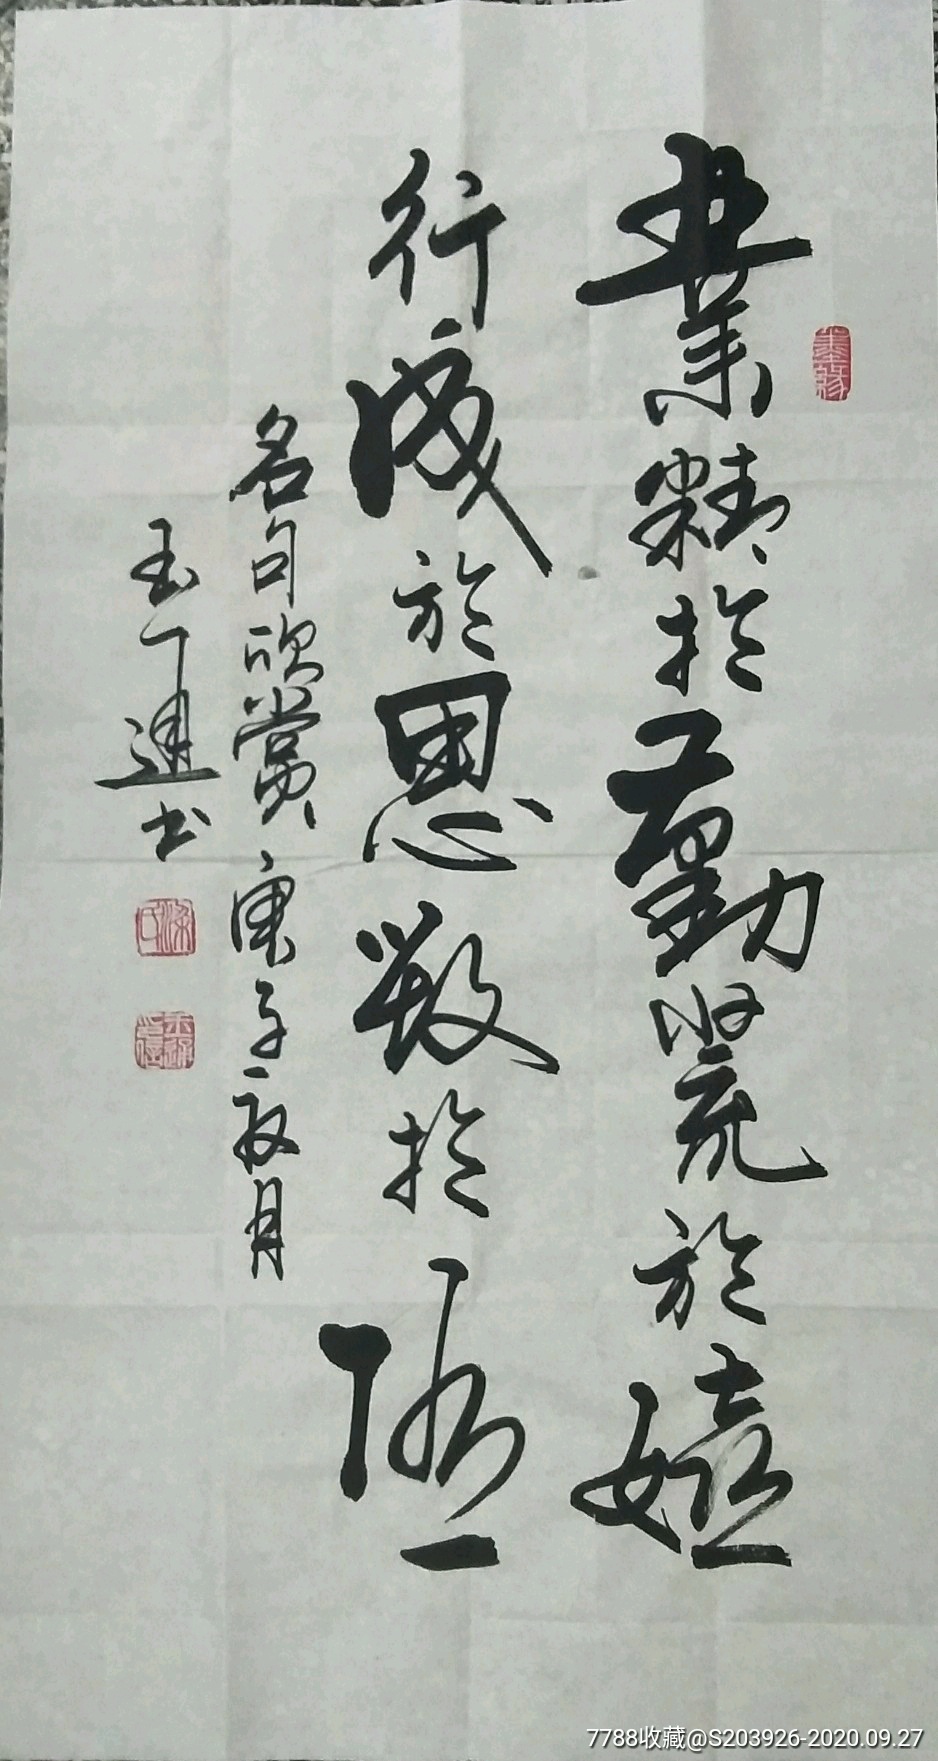 墨缘
業精於勤荒於嬉
行成於思毀於隨
名句欣賞 庚子夏月
玉通书
梁氏
7788收藏@S203926-2020.09.27